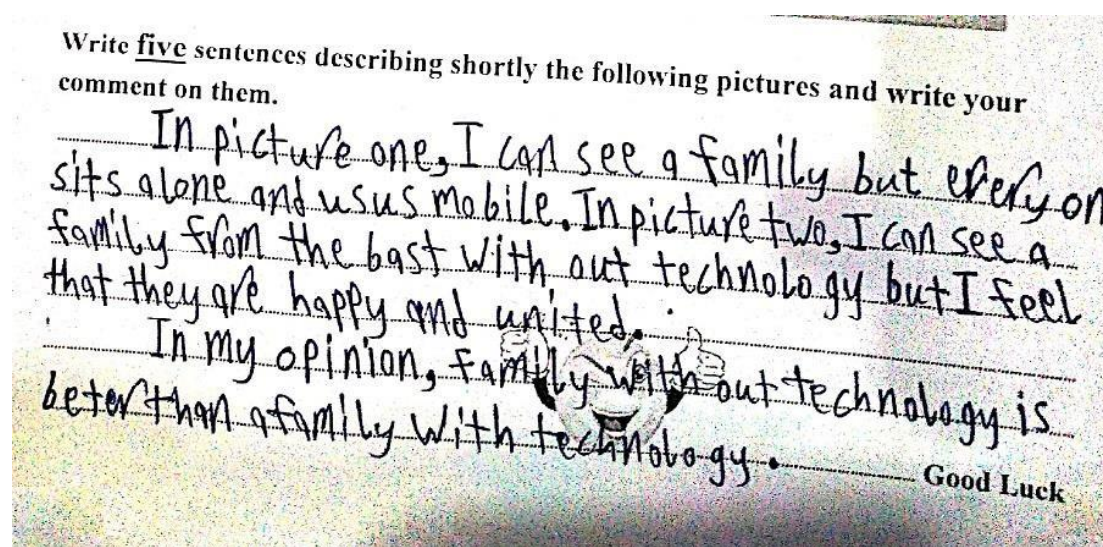 Write five sentences describing shortly the following pictures and write your
comment on them.
In picture one, I can see a family but every on
sits alone and usus mobile. In picture two, I can see a
family from the bast with out technology but I feel
that they are happy and united.
In my opinion, family with out technology is
beter than a family with technology.
Good Luck